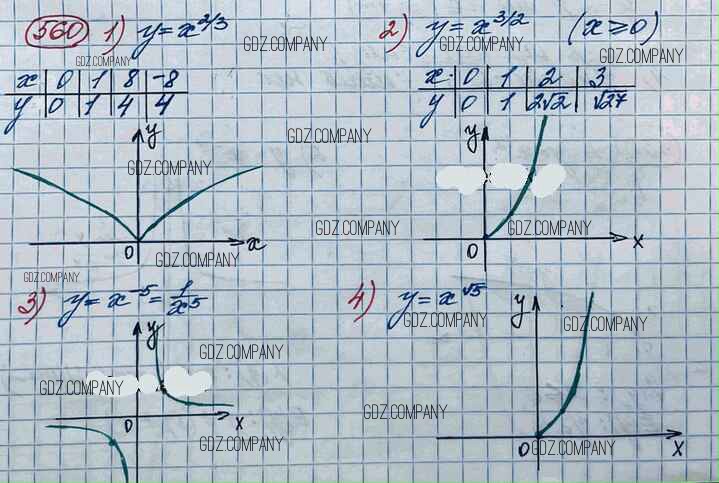 560 1) y = x^{2/3}
GDZ.COMPANY
GDZ.COMPANY
x | 0 | 1 | 8 | -8
y | 0 | 1 | 4 | 4
y
GDZ.COMPANY
GDZ.COMPANY
0 x
GDZ.COMPANY
2) y = x^{3/2} (x ≥ 0)
GDZ.COMPANY
GDZ.COMPANY
x | 0 | 1 | 2 | 3
y | 0 | 1 | 2√2 | √27
y
GDZ.COMPANY
GDZ.COMPANY
0 x
GDZ.COMPANY
3) y = x^{-5} = 1/x^5
y
GDZ.COMPANY
GDZ.COMPANY
0 x
GDZ.COMPANY
4) y = x^{√5}
GDZ.COMPANY
y
GDZ.COMPANY
GDZ.COMPANY
0 x
GDZ.COMPANY